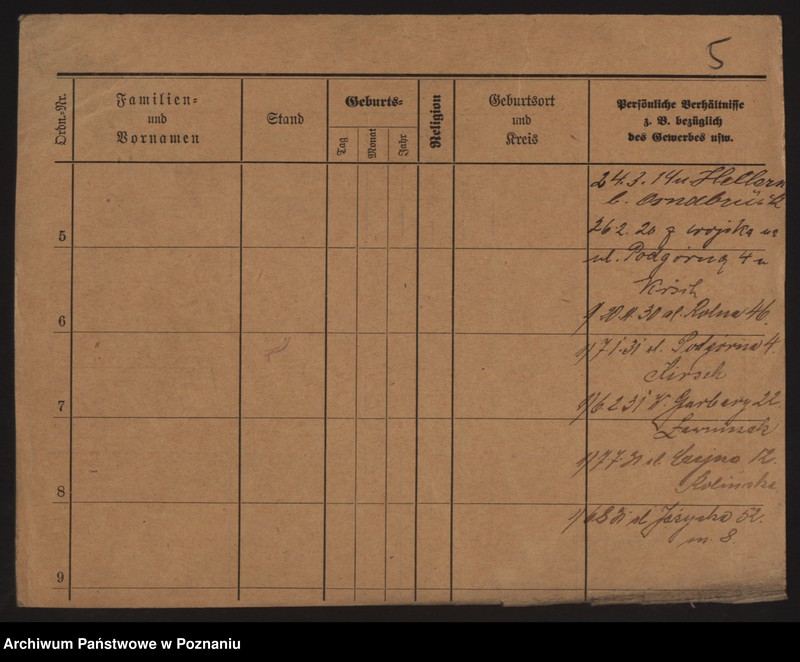 5
Ordn.-Nr.
Familien-
und
Vornamen
Stand
Geburts-
Tag
Monat
Jahr
Religion
Geburtsort
und
Kreis
Persönliche Verhältnisse
z. B. bezüglich
des Gewerbes usw.
24.3.14 u Hellern
b. Osnabrück
5
26 2. 20 z wojska na
ul. Podgórną 4 u
Kirsch
6
30 ul. Rolna 46.
7 1. 31 ul. Podgórna 4.
Kirsch
7
6 2 31 W. Garbary 22.
8
7 7. 31 ul. 12.
6 8 31 ul Jeżycka 52.
m. 8.
9
Archiwum Państwowe w Poznaniu